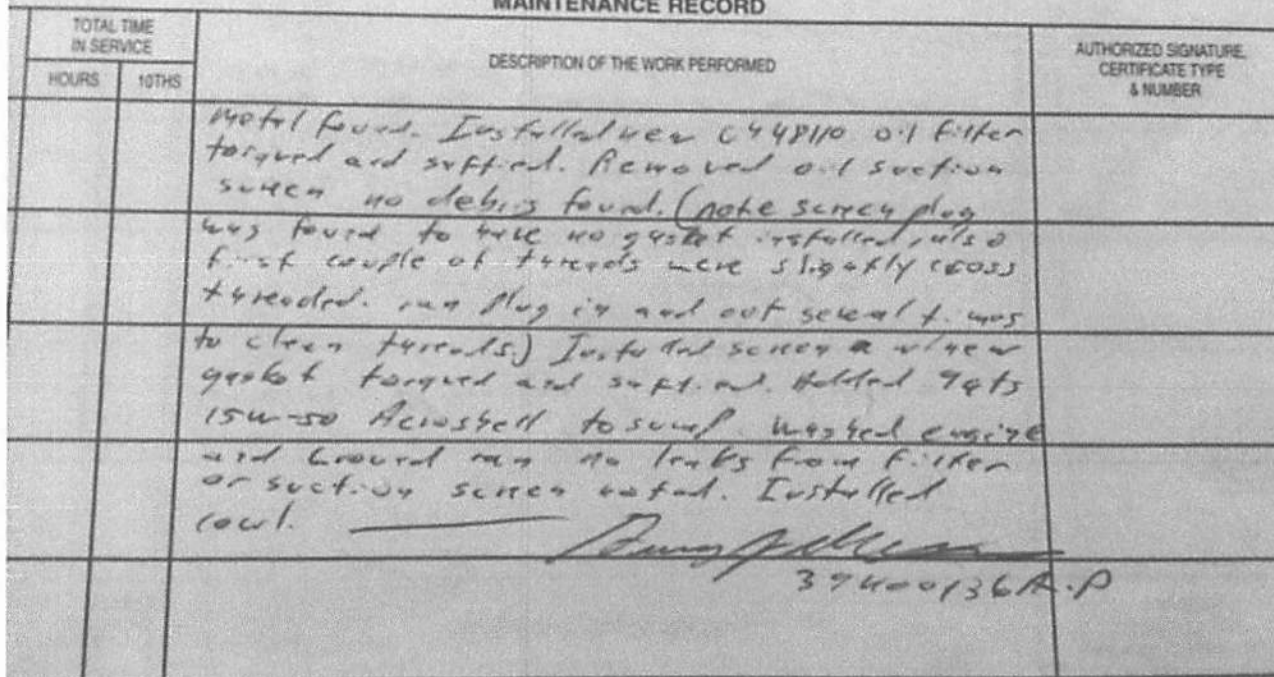 MAINTENANCE RECORD
TOTAL TIME
IN SERVICE
HOURS
10THS
DESCRIPTION OF THE WORK PERFORMED
AUTHORIZED SIGNATURE,
CERTIFICATE TYPE
& NUMBER
metal found. Installed new oil filter
torqued and saftied. Removed oil suction
screen no debris found. (note screen plug
was found to have no gasket installed, also
first couple of threads were slightly cross
threaded. ran plug in and out several times
to clean threads.) Installed screen w/new
gasket torqued and saftied. Added 9qts
15w-50 Aeroshell to sump. Washed engine
and Ground ran no leaks from filter
or suction screen noted. Installed
cowl.
A.P